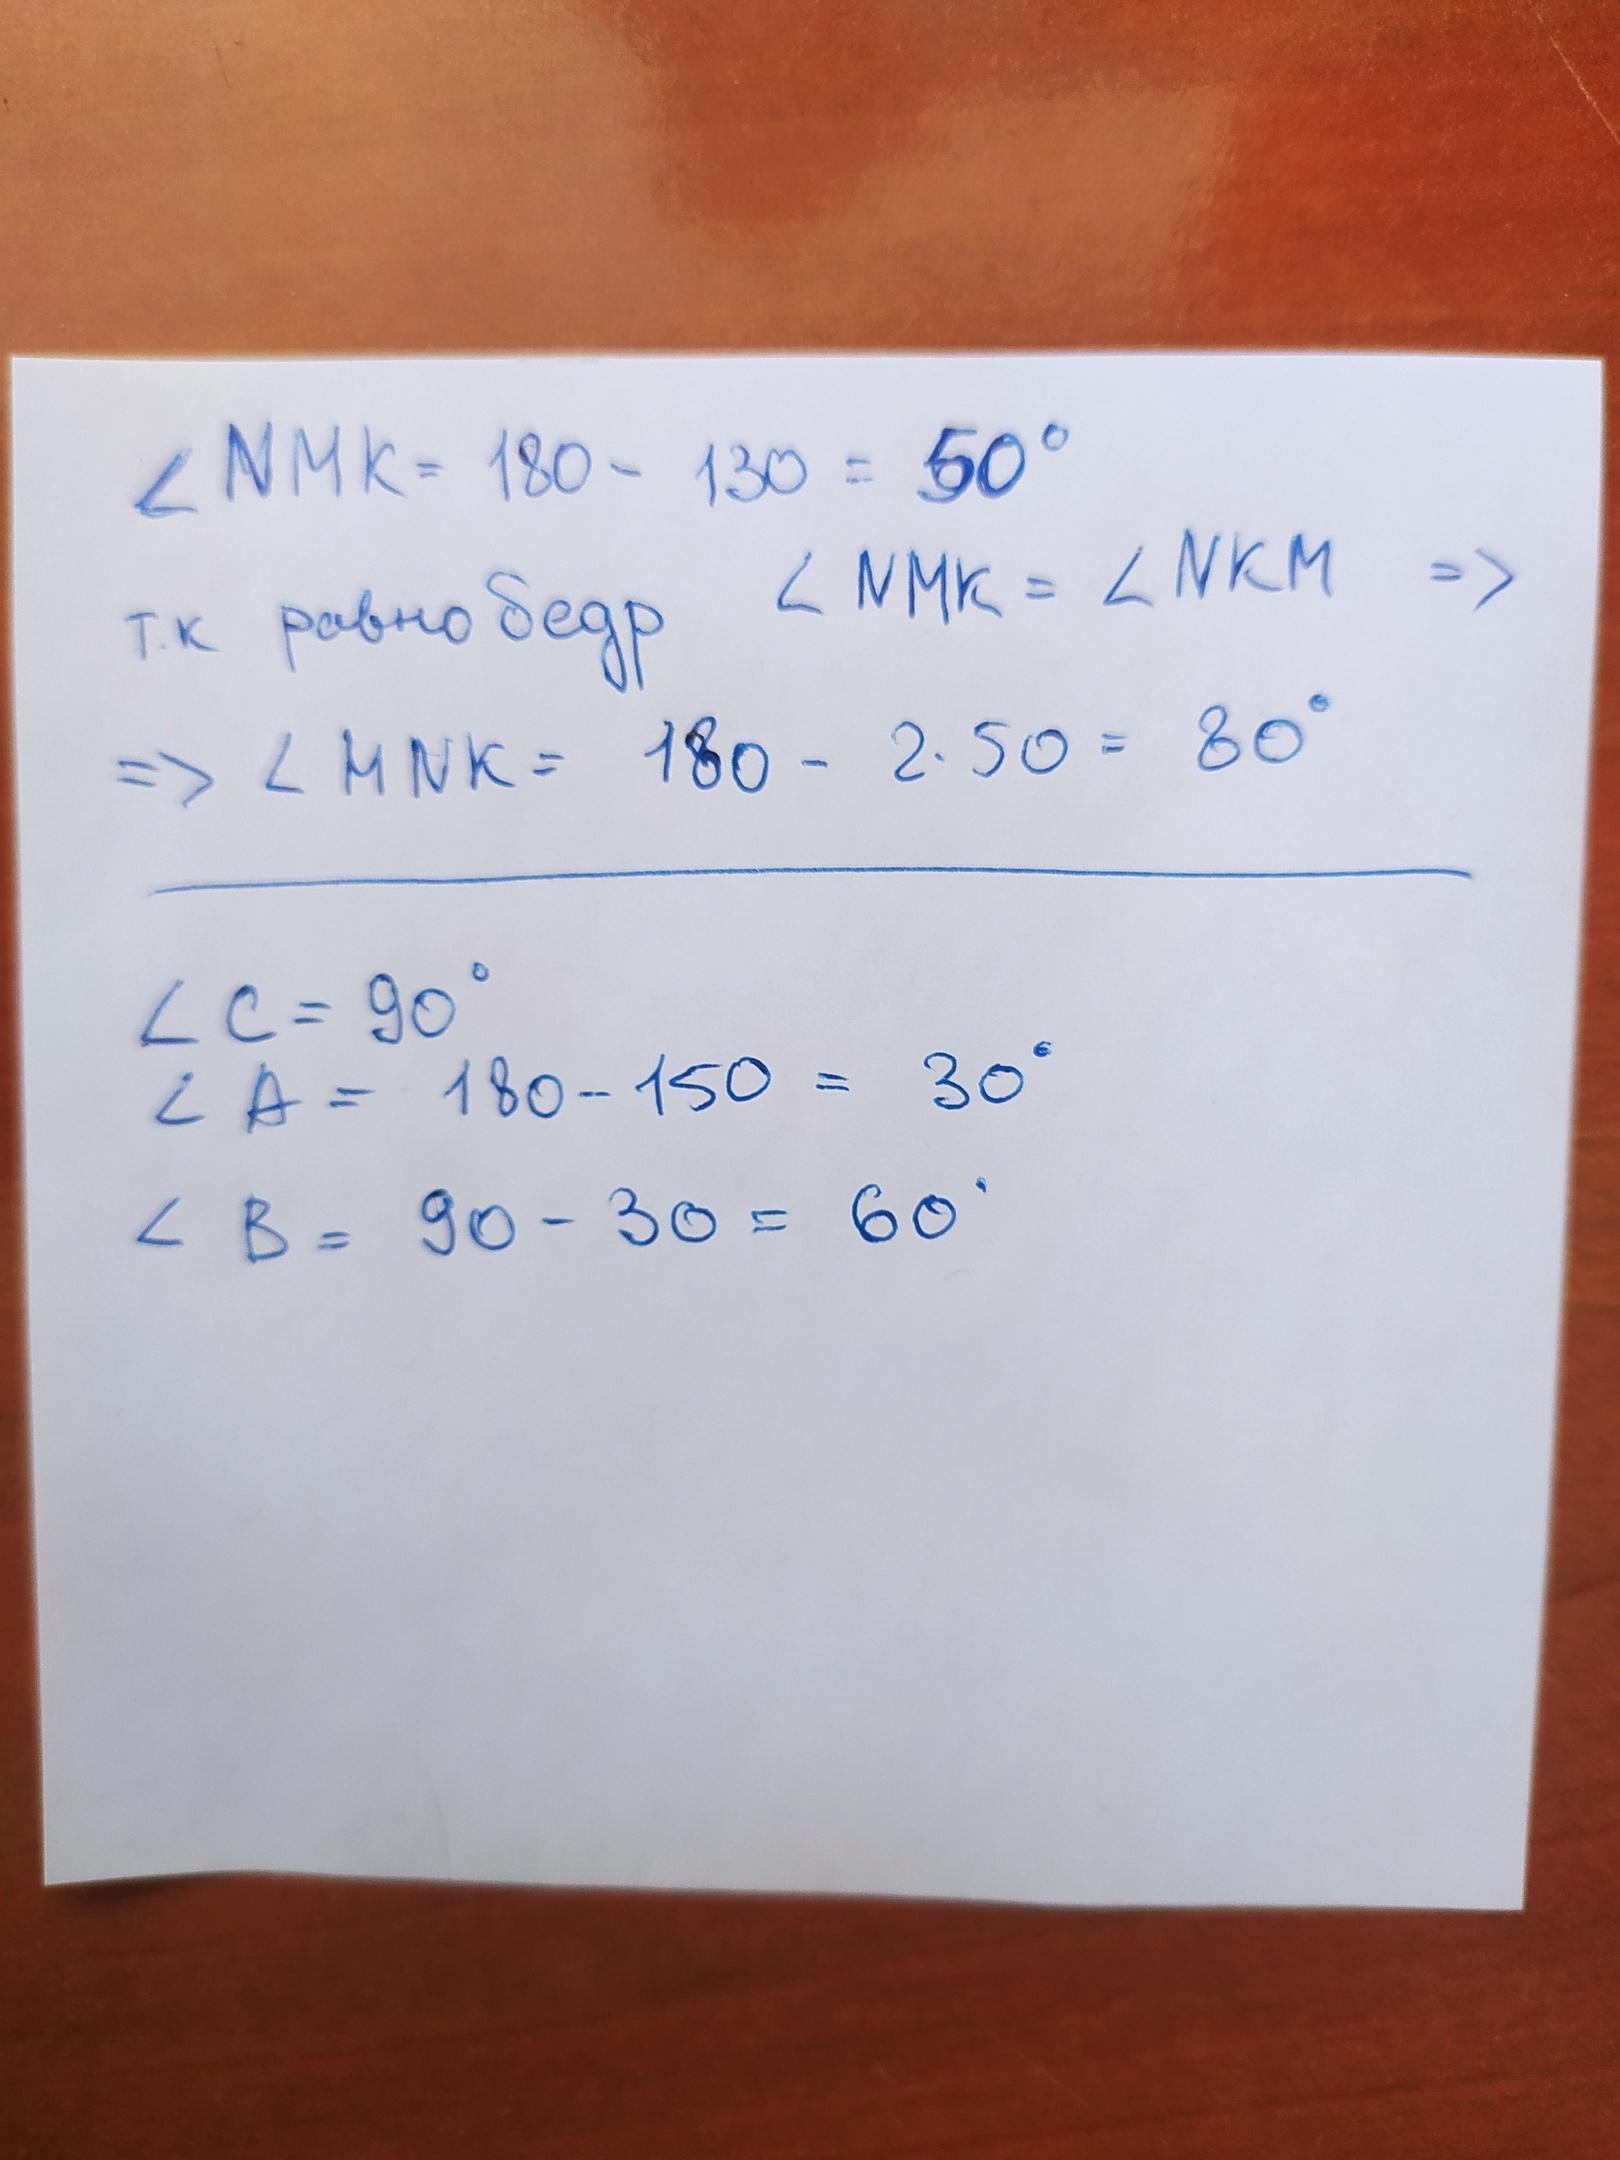 ∠ NMK = 180 - 130 = 50°
т.к равнобедр ∠ NMK = ∠ NKM =>
=> ∠ MNK = 180 - 2·50 = 80°
∠ C = 90°
∠ A = 180 - 150 = 30°
∠ B = 90 - 30 = 60°